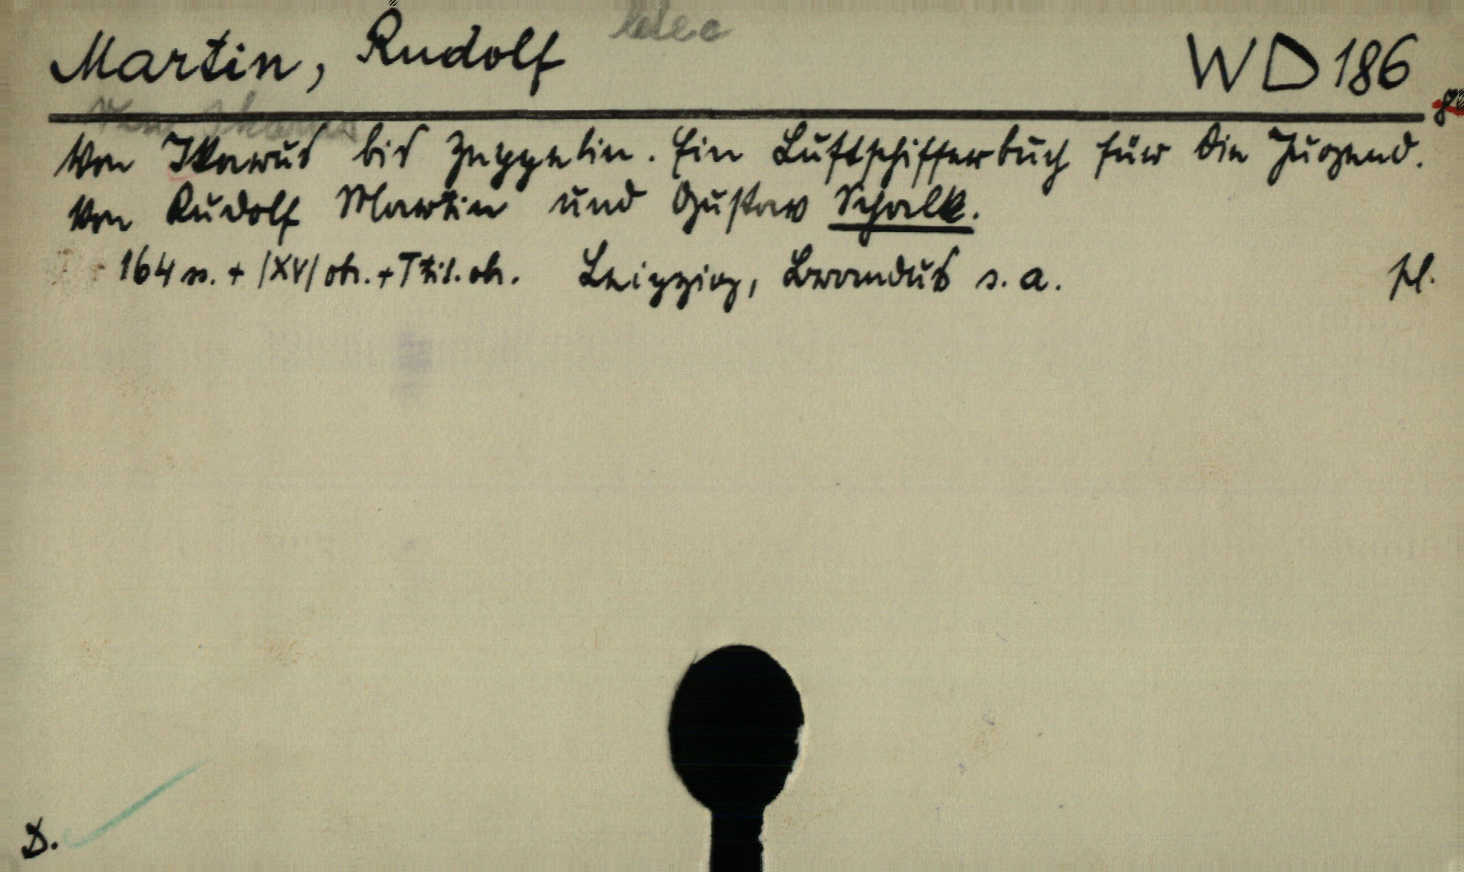 Martin, Rudolf
WD 186
8°
Von Ikarus bis Zeppelin. Ein Luftschifferbuch für die Jugend.
Von Rudolf Martin und Gustav Schalk.
164 ss. + |XV| ob. + Ttit.ob. Leipzig, Brandus s.a. pł.
D.